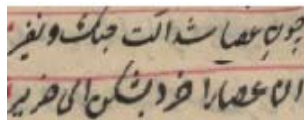 چون عصا شد آلت جنگ و نفیر
آن عصا را خرد بشکن ای ضریر